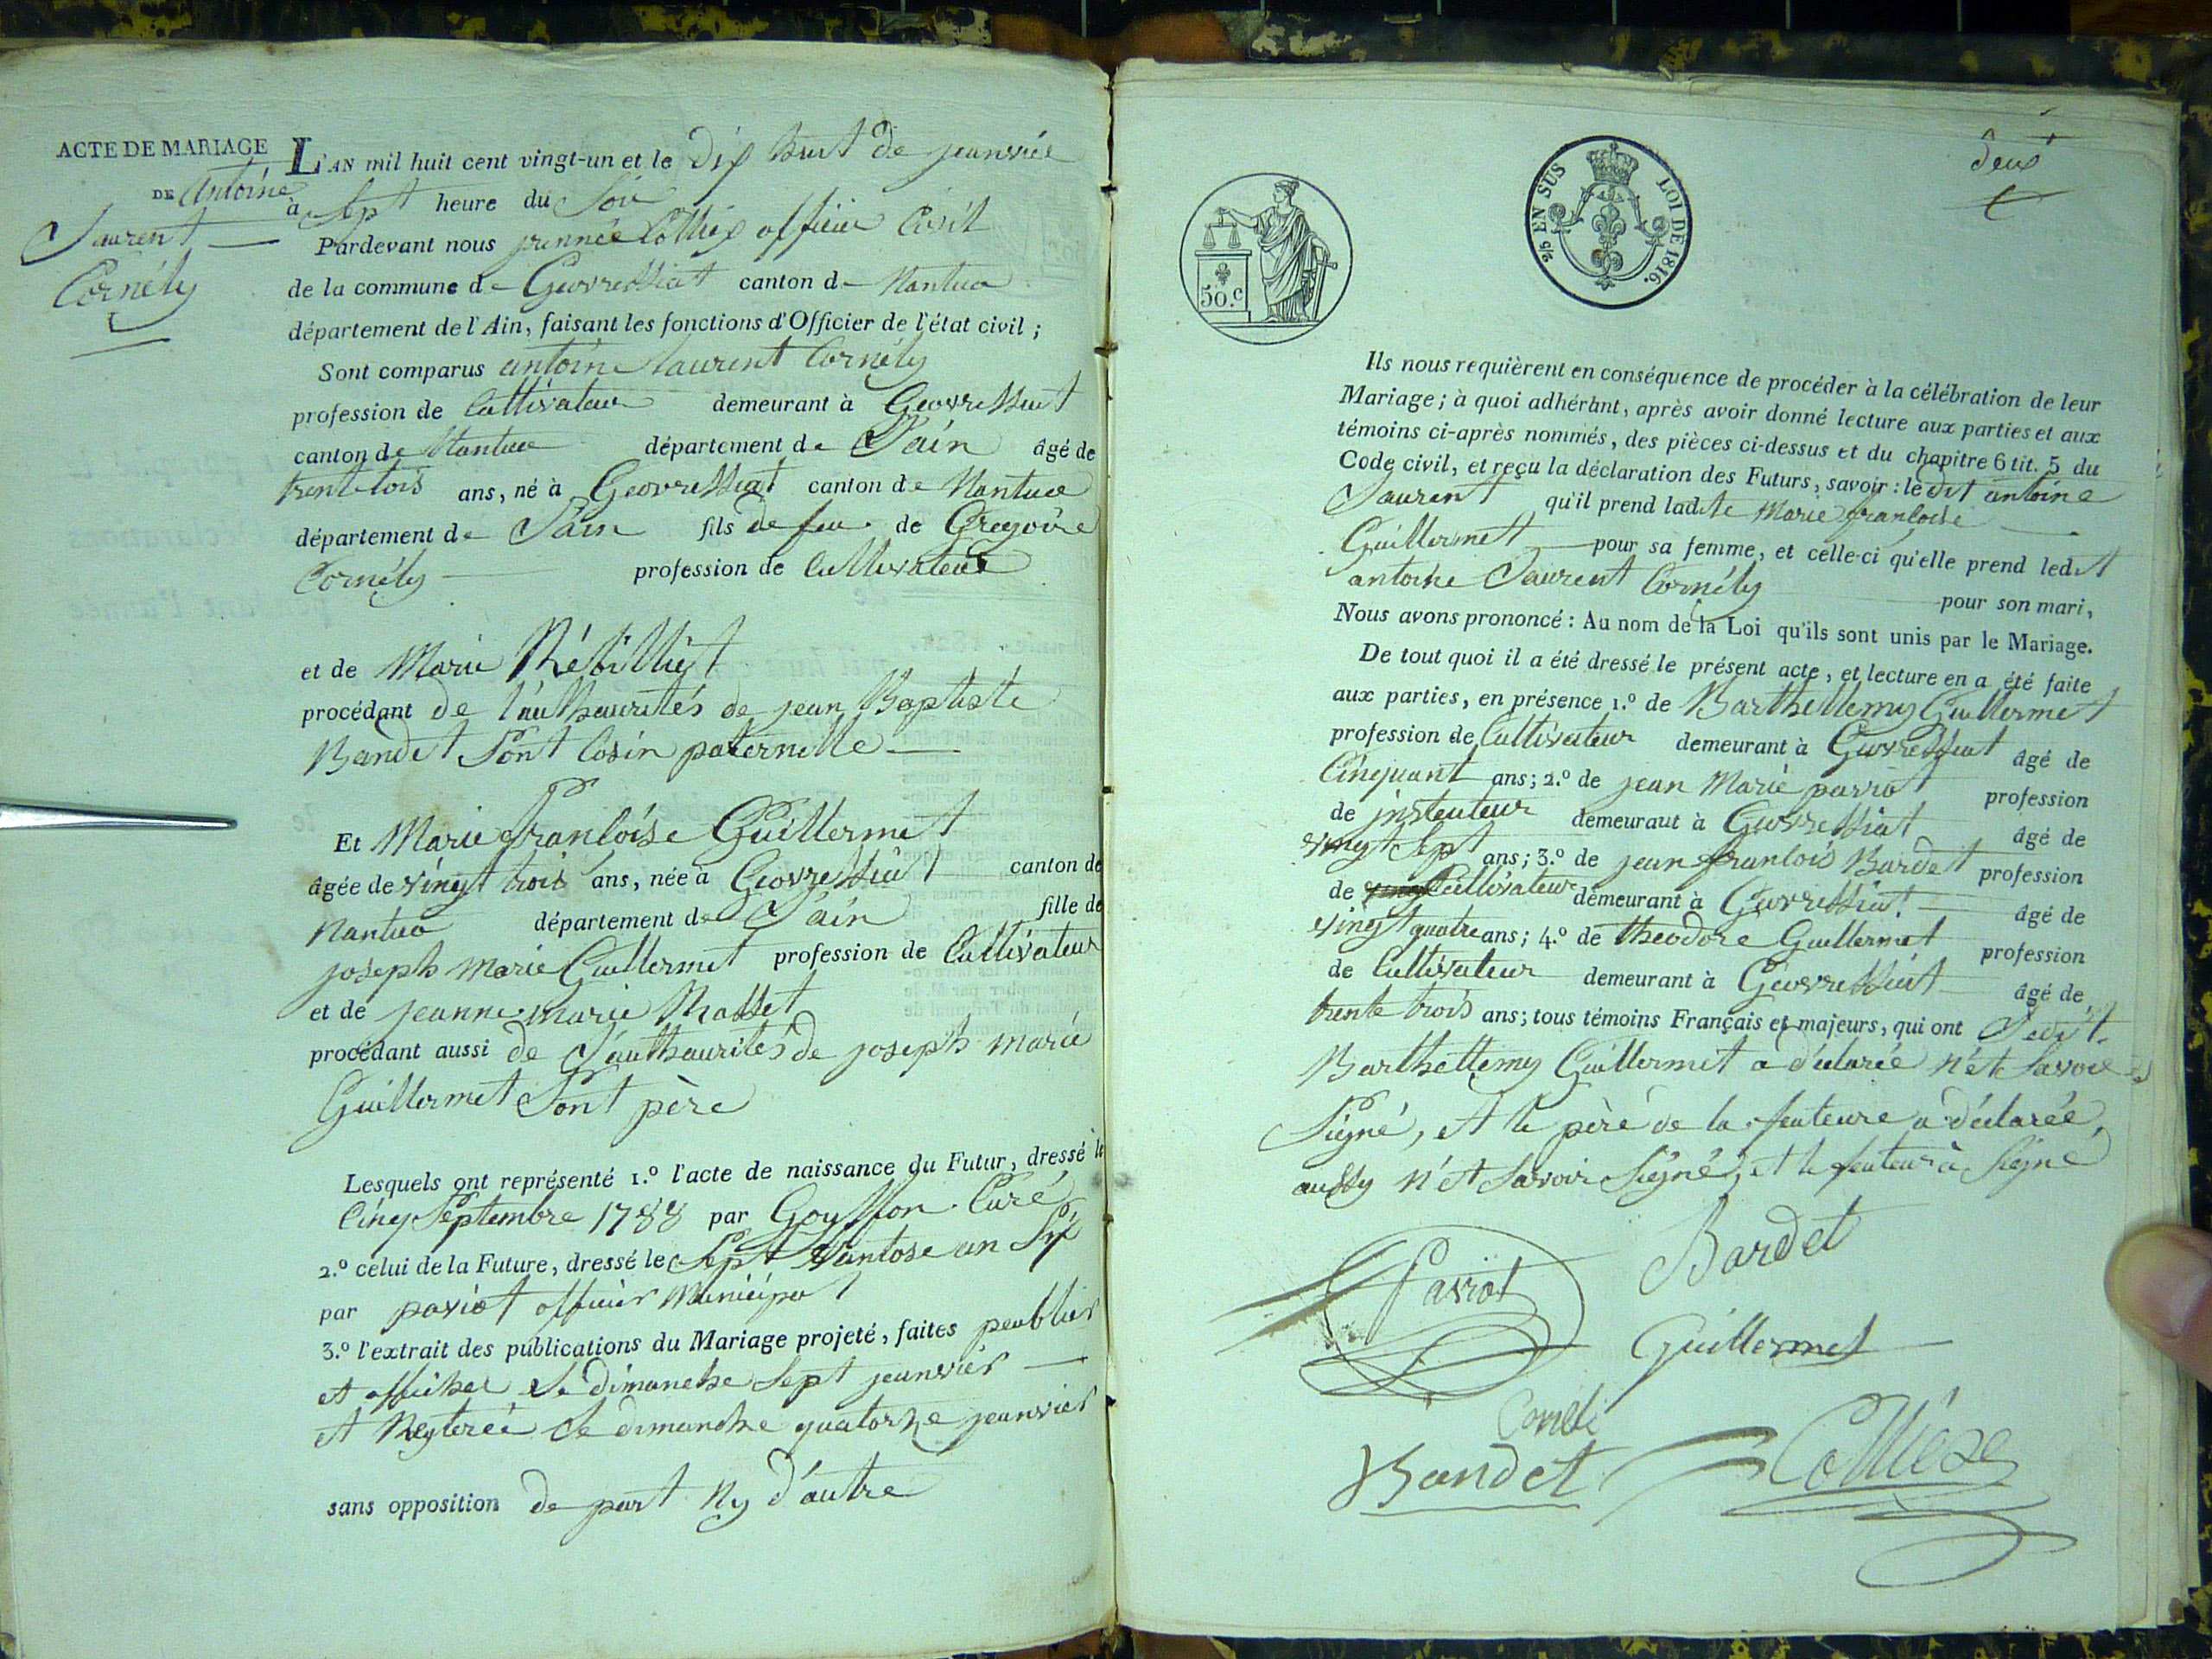 ACTE DE MARIAGE
DE Antoine
Laurent
Cornély
L'AN mil huit cent vingt-un et le Dix huit de jeanviér
à Sept heure du Soir
Pardevant nous Colliex officier Civil
de la commune de Geovressiat canton de Nantua
département de l'Ain, faisant les fonctions d'Officier de l'état civil ;
Sont comparus antoine Laurent Cornély
profession de Cultivateur demeurant à Geovressiat
canton de Nantua département de L'ain âgé de
trente tois ans, né à Geovressiat canton de Nantua
département de L'ain fils de feu de Gregoire
Cornély profession de Cultivateur
et de Marie Rébilliet
procédant de l'authaurités de jean Baptiste
Bandet Sont Cosin paternelle
Et Marie françoise Guillermet
âgée de vingt trois ans, née à Geovressiat canton de
Nantua département de L'ain fille de
joseph marie Guillermet profession de Cultivateur
et de jeanne marie Masset
procédant aussi de L'authaurités de joseph marie
Guillermet Sont père
Lesquels ont représenté 1.º l'acte de naissance du Futur, dressé le
Cinq Septembre 1788 par Goyffon Curé
2.º celui de la Future, dressé le Sept Vantose an Six
par paviot officier Municipal
3.º l'extrait des publications du Mariage projeté, faites peublier
et afficher Le dimanche Sept jeanviér
et Reyterée Le dimanche quatorze jeanvier
sans opposition de part Ny d'autre
50.c
2/5 EN SUS LOI DE 1816.
Deux
Ils nous requièrent en conséquence de procéder à la célébration de leur
Mariage ; à quoi adhérant, après avoir donné lecture aux parties et aux
témoins ci-après nommés, des pièces ci-dessus et du chapitre 6 tit. 5 du
Code civil, et reçu la déclaration des Futurs, savoir : ledit antoine
Laurent qu'il prend ladite Marie françoise
Guillermet pour sa femme, et celle-ci qu'elle prend ledit
antoine Laurent Cornély pour son mari,
Nous avons prononcé : Au nom de la Loi qu'ils sont unis par le Mariage.
De tout quoi il a été dressé le présent acte, et lecture en a été faite
aux parties, en présence 1.º de Barthellemy Guillermet
profession de Cultivateur demeurant à Geovressiat âgé de
Cinquant ans ; 2.º de jean Marie paviot profession
de insteuteur demeurant à Geovressiat âgé de
vingt Sept ans ; 3.º de jean françois Bardet profession
de Cultivateur demeurant à Geovressiat âgé de
vingt quatre ans ; 4.º de theodore Guillermet profession
de Cultivateur demeurant à Geovressiat âgé de
trente trois ans ; tous témoins Français et majeurs, qui ont Ledit
Barthellemy Guillermet a déclarée n'ét Savoir
Signé, et le père de la feuteure a déclarée,
aussy n'ét Savoir Signé, et le feuteur à Signé
Paviot
Bardet
Guillermet
Cornéli
Bandet
Colliex